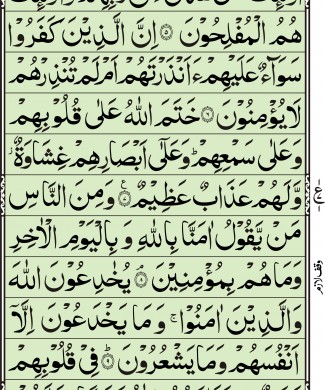 هُمُ الْمُفْلِحُونَ ۝ اِنَّ الَّذِيْنَ كَفَرُوْا
سَوَآءٌ عَلَيْهِمْ ءَاَنْذَرْتَهُمْ اَمْ لَمْ تُنْذِرْهُمْ
لَا يُؤْمِنُوْنَ ۝ خَتَمَ اللّٰهُ عَلٰى قُلُوْبِهِمْ
وَعَلٰى سَمْعِهِمْ ؕ وَعَلٰٓى اَبْصَارِهِمْ غِشَاوَةٌ ز
وَّلَهُمْ عَذَابٌ عَظِيْمٌ ۝ وَمِنَ النَّاسِ
مَنْ يَّقُوْلُ اٰمَنَّا بِاللّٰهِ وَ بِالْيَوْمِ الْاٰخِرِ
وَمَا هُمْ بِمُؤْمِنِيْنَ ۝ يُخٰدِعُوْنَ اللّٰهَ
وَالَّذِيْنَ اٰمَنُوْا ۚ وَ مَا يَخْدَعُوْنَ اِلَّآ
اَنْفُسَهُمْ وَمَا يَشْعُرُوْنَ ۝ فِيْ قُلُوْبِهِمْ
وقف لازم